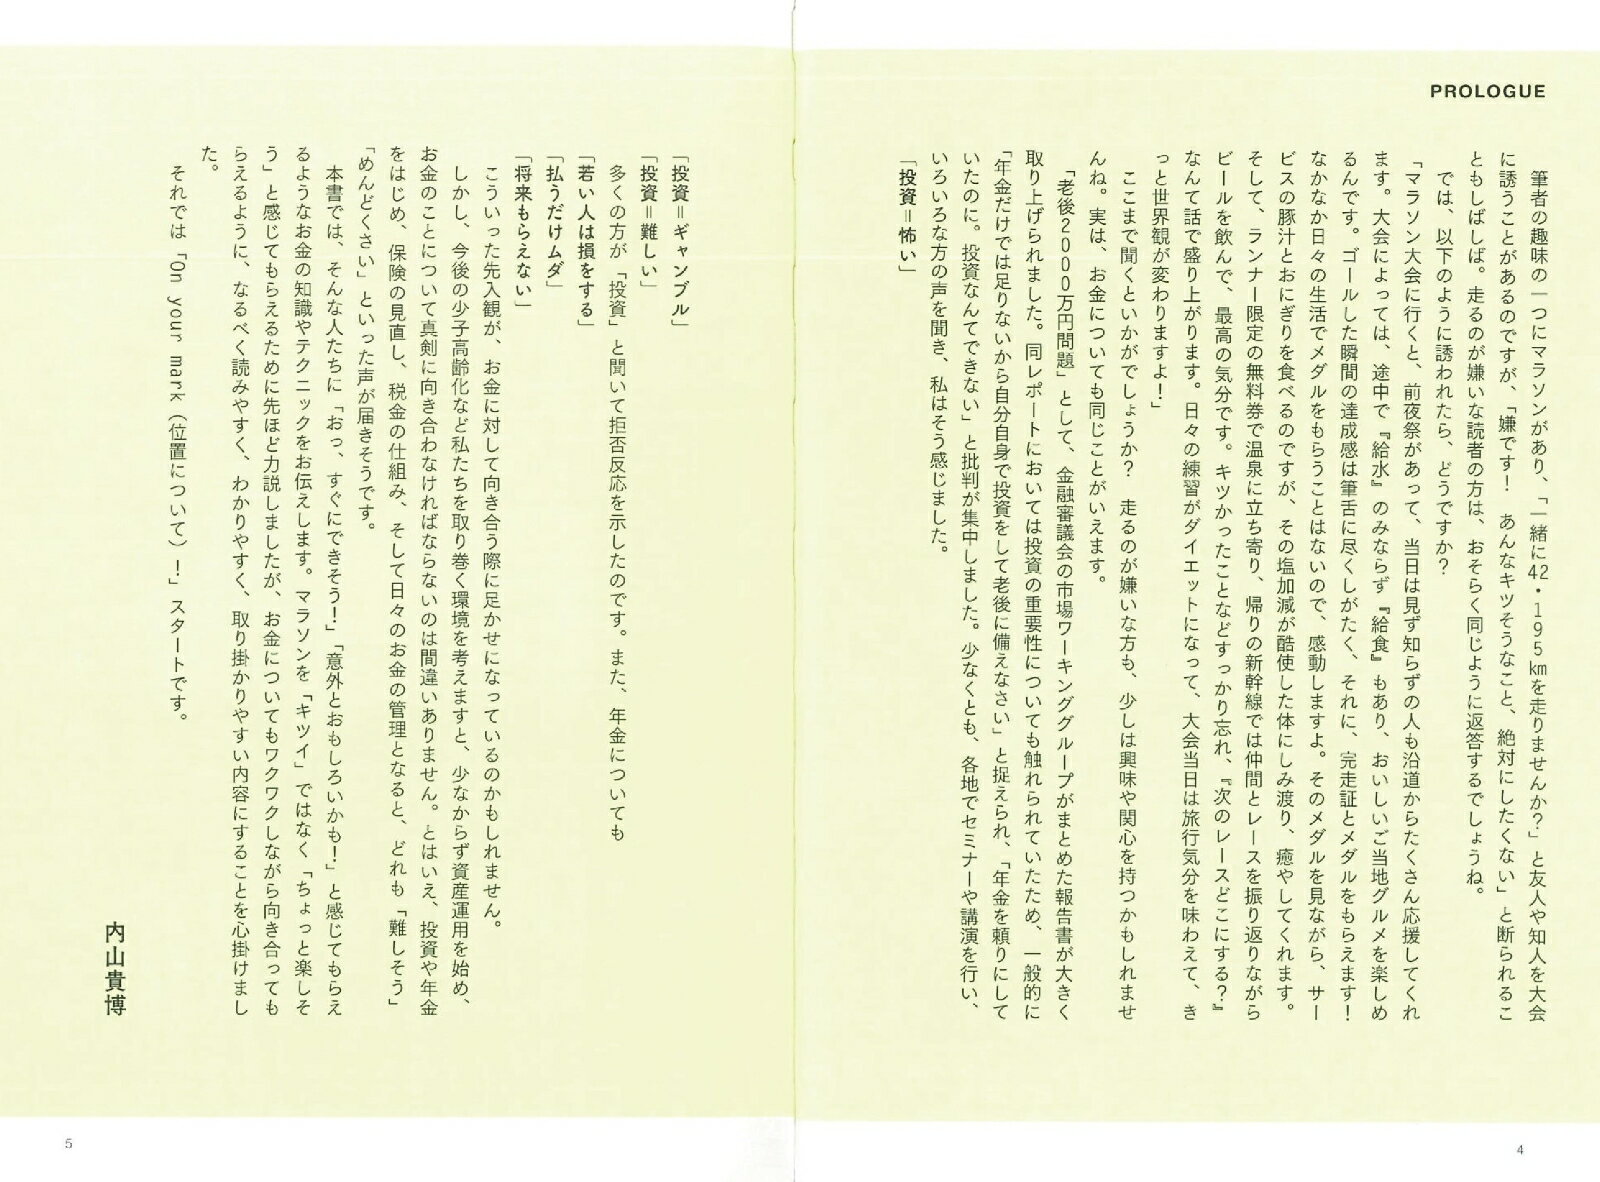 PROLOGUE
筆者の趣味の一つにマラソンがあり、「一緒に42・195㎞を走りませんか？」と友人や知人を大会
に誘うことがあるのですが、「嫌です！　あんなキツそうなこと、絶対にしたくない」と断られるこ
ともしばしば。走るのが嫌いな読者の方は、おそらく同じように返答するでしょうね。
では、以下のように誘われたら、どうですか？
「マラソン大会に行くと、前夜祭があって、当日は見ず知らずの人も沿道からたくさん応援してくれ
ます。大会によっては、途中で『給水』のみならず『給食』もあり、おいしいご当地グルメを楽しめ
るんです。ゴールした瞬間の達成感は筆舌に尽くしがたく、それに、完走証とメダルをもらえます！
なかなか日々の生活でメダルをもらうことはないので、感動しますよ。そのメダルを見ながら、サー
ビスの豚汁とおにぎりを食べるのですが、その塩加減が酷使した体にしみ渡り、癒やしてくれます。
そして、ランナー限定の無料券で温泉に立ち寄り、帰りの新幹線では仲間とレースを振り返りながら
ビールを飲んで、最高の気分です。キツかったことなどすっかり忘れ、『次のレースどこにする？』
なんて話で盛り上がります。日々の練習がダイエットになって、大会当日は旅行気分を味わえて、き
っと世界観が変わりますよ！」
ここまで聞くといかがでしょうか？　走るのが嫌いな方も、少しは興味や関心を持つかもしれませ
んね。実は、お金についても同じことがいえます。
「老後2000万円問題」として、金融審議会の市場ワーキンググループがまとめた報告書が大きく
取り上げられました。同レポートにおいては投資の重要性についても触れられていたため、一般的に
「年金だけでは足りないから自分自身で投資をして老後に備えなさい」と捉えられ、「年金を頼りにして
いたのに。投資なんてできない」と批判が集中しました。少なくとも、各地でセミナーや講演を行い、
いろいろな方の声を聞き、私はそう感じました。
「投資＝怖い」
4
「投資＝ギャンブル」
「投資＝難しい」
多くの方が「投資」と聞いて拒否反応を示したのです。また、年金についても
「若い人は損をする」
「払うだけムダ」
「将来もらえない」
こういった先入観が、お金に対して向き合う際に足かせになっているのかもしれません。
しかし、今後の少子高齢化など私たちを取り巻く環境を考えますと、少なからず資産運用を始め、
お金のことについて真剣に向き合わなければならないのは間違いありません。とはいえ、投資や年金
をはじめ、保険の見直し、税金の仕組み、そして日々のお金の管理となると、どれも「難しそう」
「めんどくさい」といった声が届きそうです。
本書では、そんな人たちに「おっ、すぐにできそう！」「意外とおもしろいかも！」と感じてもらえ
るようなお金の知識やテクニックをお伝えします。マラソンを「キツイ」ではなく「ちょっと楽しそ
う」と感じてもらえるために先ほど力説しましたが、お金についてもワクワクしながら向き合っても
らえるように、なるべく読みやすく、わかりやすく、取り掛かりやすい内容にすることを心掛けまし
た。
それでは「On your mark（位置について）！」スタートです。
内山貴博
5